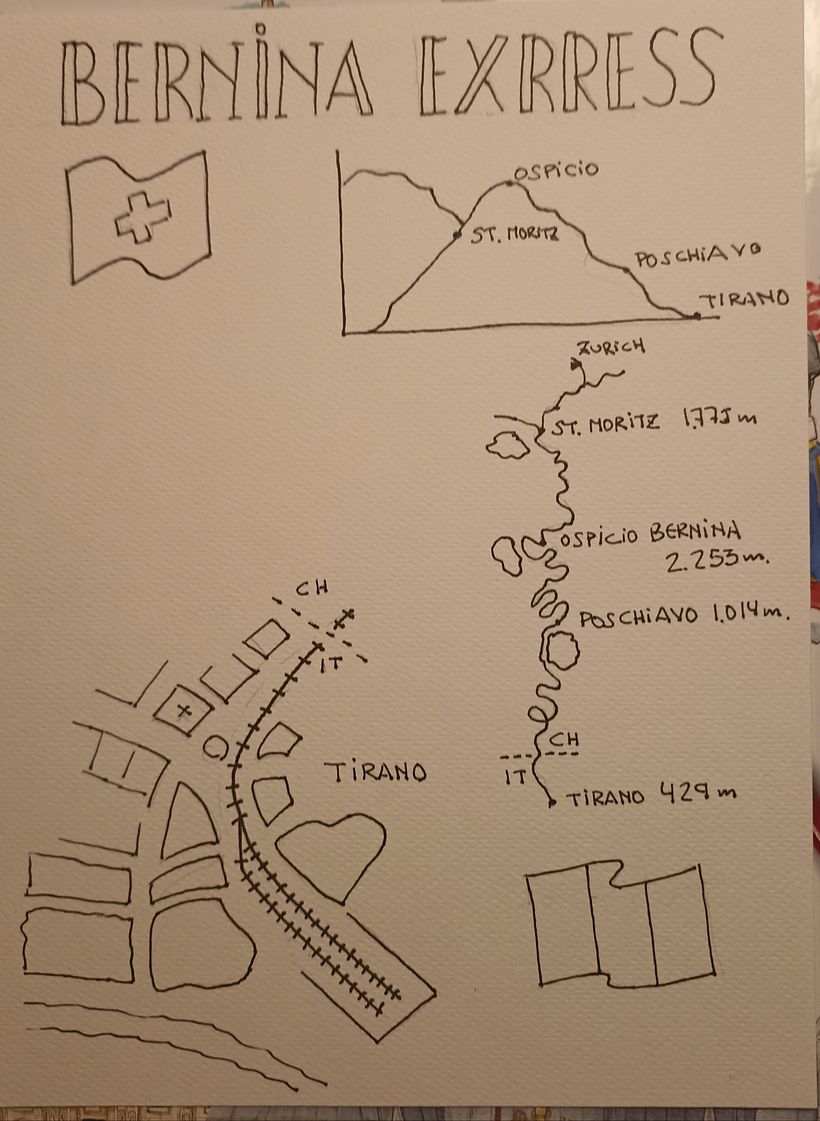 BERNiNA EXRRESS
OSPiCiO
ST. MORiTZ
POSCHiAVO
TiRANO
ZURiCH
ST. MORiTZ 1.775 m
OSPiCiO BERNiNA
2.253 m.
POSCHiAVO 1.014 m.
CH
IT
TiRANO 429 m
CH
IT
TiRANO